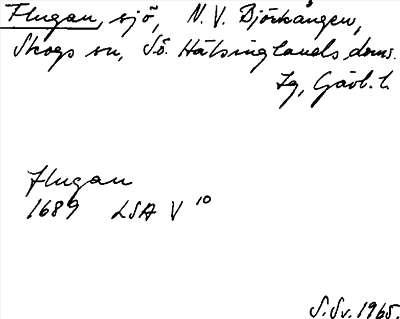 Flugan, sjö, N.V. Björkången,
Skogs sn, Sö. Hälsinglands doms.
Lg, Gävl. l.
Flugan
1689 LSA V 10
S. Sv. 1965.